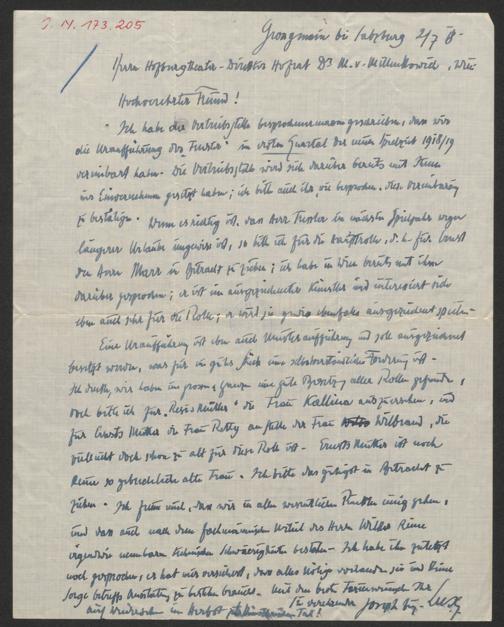 I. N. 173.205
Grossgmain bei Salzburg 2/7 18
Herrn Hofburgtheater-Direktor Hofrat Dr M. v. Millenkovich, Wien
Hochverehrter Freund!
Ich habe die Vertriebsstelle besprochenermassen geschrieben, dass wir
die Uraufführung des in ersten Quartal der neuen Spielzeit 1918/19
vereinbart haben. Die Vertriebsstelle wird sich darüber bereits mit Ihnen
ins Einvernehmen gesetzt haben; ich bitte auch ihr, wie besprochen, diese Vereinbarung
zu bestätigen. Wenn es richtig ist, dass Herr im nächsten Spieljahr wegen
längerer Urlaube ungewiss ist, so bitte ich für die Hauptrolle, d. h. für Ernst
den Herrn Marr in Betracht zu ziehen; ich habe in Wien bereits mit ihm
darüber gesprochen; er ist ein ausgezeichneter Künstler und interessiert sich
eben auch sehr für die Rolle; er wird sie gewiss ebenfalls ausgezeichnet spielen.
Eine Uraufführung ist eben auch Musteraufführung und soll ausgezeichnet
besetzt werden, was für ein gutes Stück eine selbstverständliche Forderung ist.
Ich denke, wir haben im grossen Ganzen eine gute Besetzung aller Rollen gefunden,
doch bitte ich für "Resis Mutter" die Frau Kallina auszuersehen, und
für Ernsts Mutter die Frau Retty an Stelle der Frau Wilbrandt, die
vielleicht doch schon zu alt für diese Rolle ist. Ernsts Mutter ist noch
keine so gebrechliche alte Frau. Ich bitte das gütigst in Betracht zu
ziehen. Ich freue mich, dass wir in allen wesentlichen Punkten einig gehen,
und dass auch nach dem fachmännischen Urteil des Herrn Wilke keine
irgendwie nennbaren technischen Schwierigkeiten bestehen. Ich habe ihn zuletzt
noch gesprochen, er hat mir versichert, dass alles Nötige vorhanden sei und keine
Sorge betreffs Ausstattung zu bestehen brauche. Mit den besten Ferienwünschen Ihr
Sie verehrender Joseph Aug. Lux
auf Wiedersehen im Herbst